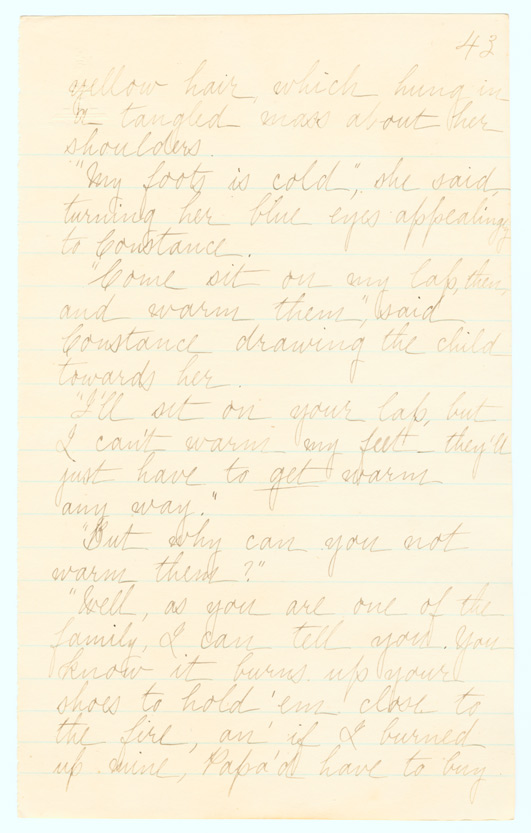 43
yellow hair, which hung in
a tangled mass about her
shoulders.
"My foots is cold", she said,
turning her blue eyes appealingly
to Constance.
"Come sit on my lap, then,
and warm them", said
Constance drawing the child
towards her.
"I'll sit on your lap, but
I can't warm my feet – they'll
just have to get warm
any way."
"But why can you not
warm them?"
"Well, as you are one of the
family, I can tell you. You
know it burns up your
shoes to hold 'em close to
the fire, an' if I burned
up mine, Papa'd have to buy